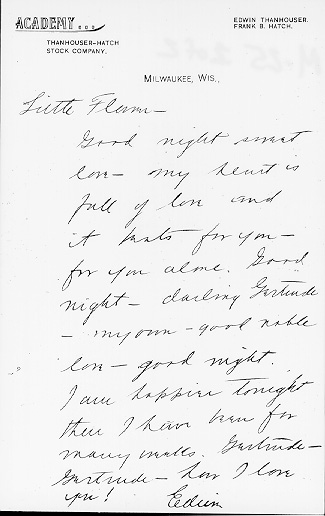 ACADEMY...
THANHOUSER-HATCH
STOCK COMPANY.
EDWIN THANHOUSER.
FRANK B. HATCH.
MILWAUKEE, WIS.,
Little Flower—
Good night sweet
love— my heart is
full of love and
it beats for you—
for you alone. Good
night— darling Gertrude
— my own— good noble
love— good night.
I am happier tonight
than I have been for
many weeks. Gertrude—
Gertrude— how I love
you! Edwin